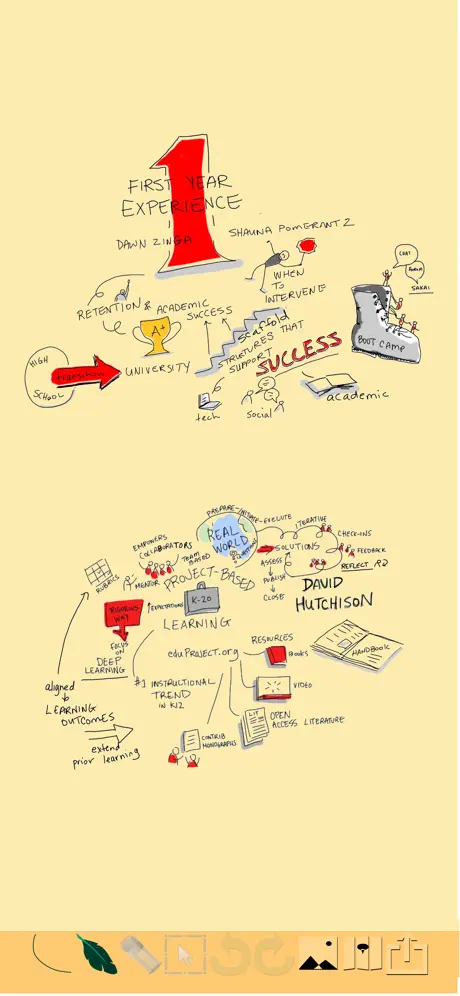 1
FIRST YEAR
EXPERIENCE
DAWN ZINGA
SHAUNA POMERANTZ
WHEN
TO
INTERVENE
RETENTION & ACADEMIC
SUCCESS
A+
HIGH
SCHOOL
transition
UNIVERSITY
scaffold
STRUCTURES THAT
SUPPORT
SUCCESS
tech
social
academic
CHAT
FORUM
SAKAI
BOOT CAMP
PREPARE-INITIATE-EXECUTE
REAL
WORLD
QUESTIONS
ITERATIVE
CHECK-INS
FEEDBACK
REFLECT
SOLUTIONS
ASSESS
PUBLISH
CLOSE
EMPOWERS
COLLABORATORS
TEAM
BASED
MENTOR
RUBRICS
PROJECT-BASED
K-20
LEARNING
RIGOROUS
WAY
↑EXPECTATIONS
FOCUS
ON
DEEP
LEARNING
DAVID
HUTCHISON
HANDBOOK
eduPROJECT.org
RESOURCES
BOOKS
VIDEO
LIT
OPEN
ACCESS LITERATURE
CONTRIB
MONOGRAPHS
#1 INSTRUCTIONAL
TREND
IN K12
aligned
LEARNING
OUTCOMES
extend
prior learning